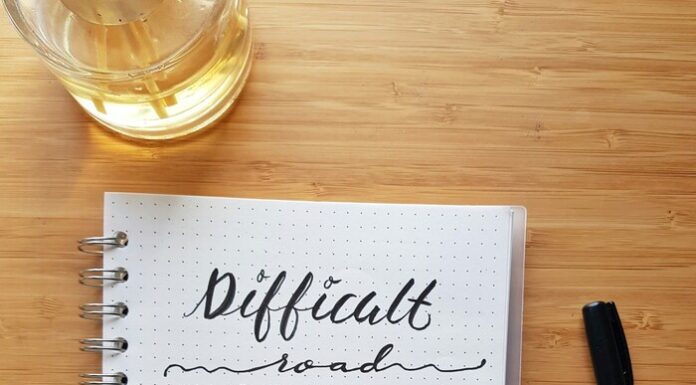 Difficult
road